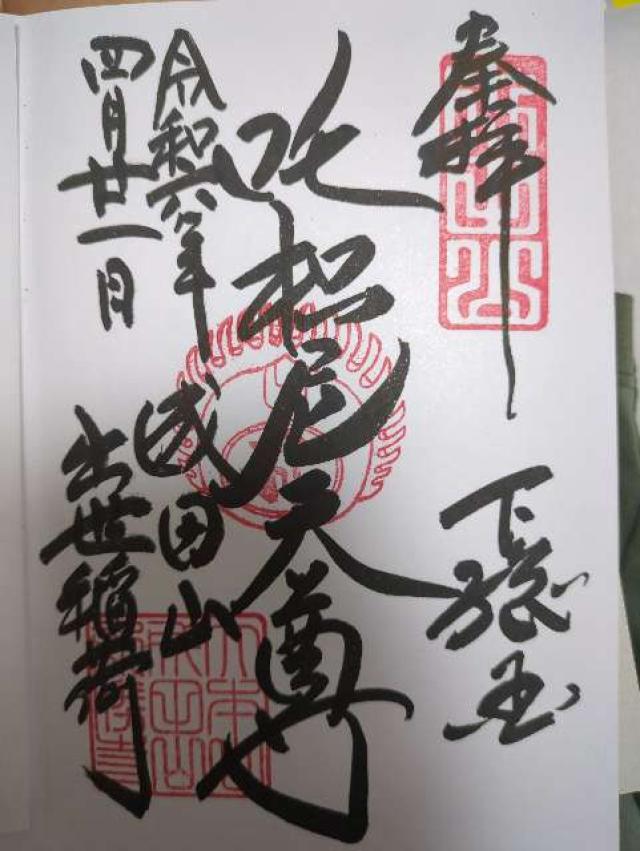 奉拝
下総国
吒枳尼天尊
令和六年
四月廿一日
成田山
出世稲荷